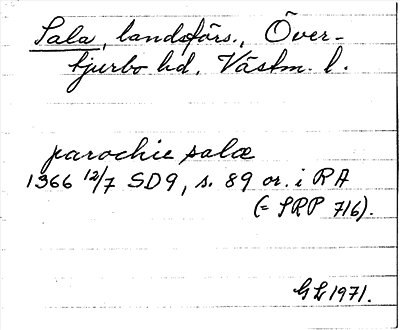 Sala, landsförs., Över-
tjurbo hd. Västm. l.
parochie salæ
1366 12/7 SD9, s. 89 or. i RA
(= SRP 716).
GL 1971.